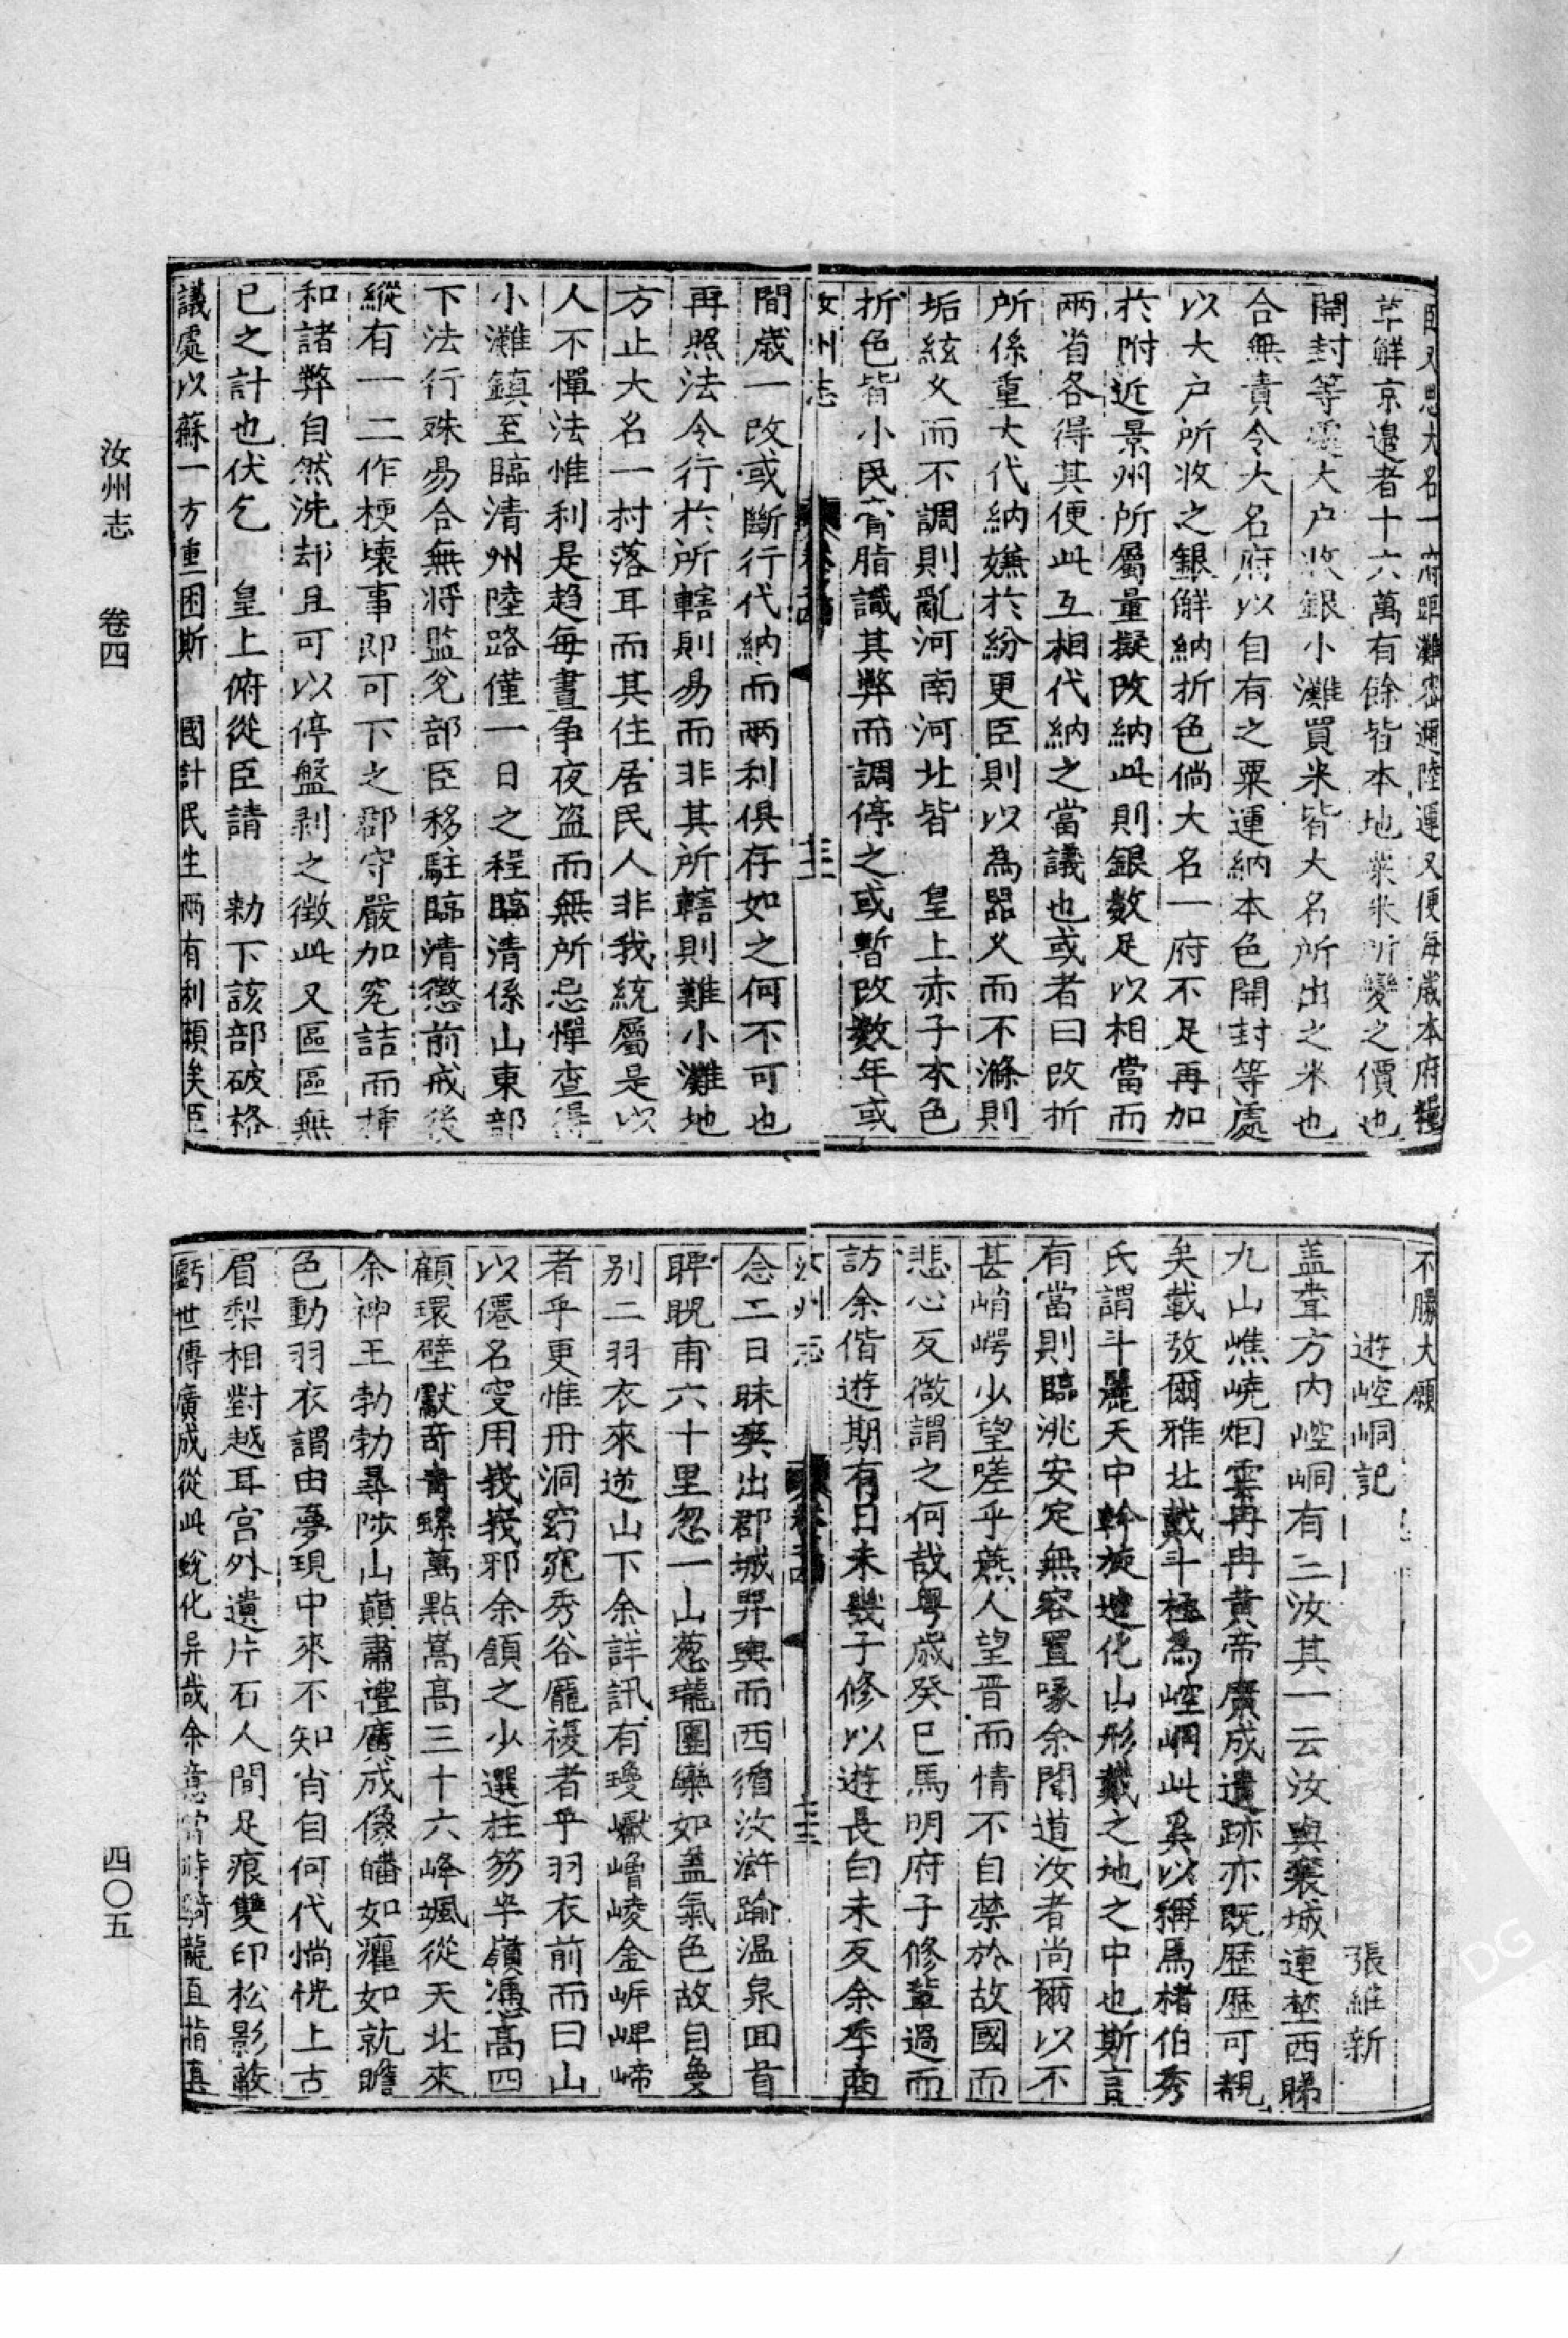 臣又思大名一府距灘密邇陸運又便每歲本府糧
草解京邊者十六萬有餘皆本地粟米所變之價也
開封等處大户收銀小灘買米皆大名所出之米也
合無責令大名府以自有之粟運納本色開封等處
以大户所收之銀解納折色倘大名一府不足再加
扵附近景州所屬量擬改納此則銀數足以相當而
兩省各得其便此互相代納之當議也或者曰改折
所係重大代納嫌扵紛更臣則以為噐乆而不滌則
垢絃乆而不調則亂河南河北皆 皇上赤子本色
折色皆小民膏脂識其弊而調停之或暫改數年或
汝州志 卷之四 十三
間歲一改或斷行代納而兩利俱存如之何不可也
再照法令行扵所轄則易而非其所轄則難小灘地
方止大名一村落耳而其住居民人非我統屬是以
人不憚法惟利是趋每晝争夜盗而無所忌憚查得
小灘鎮至臨清州陸路僅一日之程臨清係山東部
下法行殊易合無将监兊部臣移駐臨清懲前戒後
縱有一二作梗壊事即可下之郡守嚴加究詰而揷
和諸弊自然洗却且可以停盤剥之徴此又區區無
已之計也伏乞 皇上俯從臣請 勑下該部破格
議處以蘇一方重困斯 國計民生兩有利頼矣臣
不勝大願
遊崆峒記 張維新
盖聾方内崆峒有三汝其一云汝與襄城連埜西睇
九山嶕嶢烟雲冉冉黄帝廣成遺跡亦既歴歴可覩
矣載攷爾雅北戴斗極爲崆峒此奚以稱焉楮伯秀
氏謂斗麗天中幹旋造化山形戴之地之中也斯言
有當則臨洮安定無容置喙余聞道汝者尚爾以不
甚峭崿少望嗟乎燕人望晋而情不自禁於故國而
悲心反微謂之何哉粤歳癸巳馬明府子修輩過而
訪余偕遊期有日未幾子修以遊長白未反余季商
汝州志 卷之四 十三
念二日昧爽出郡城舁輿而西循汝滸踰温泉囬首
睥睨甫六十里忽一山葱瓏團欒如盖氣色故自夐
别二羽衣來逆山下余詳訊有瓊巘嶒崚金岍崥崹
者乎更惟丹洞窈窕秀谷龐複者乎羽衣前而曰山
以僊名安用峩峩邪余頷之少選拄笻半嶺慿高四
顧環壁獻竒青螺萬點嵩高三十六峰颯從天北來
余神王勃勃尋陟山巔肅禮廣成像皤如癯如就瞻
色動羽衣謂由夢現中來不知肖自何代惝恍上古
眉梨相對越耳宫外遺片石人間足痕雙印松影蔽
虧世傳廣成從此蛻化异哉余意當時騎龍直指真
汝州志 卷四
四〇五
DG